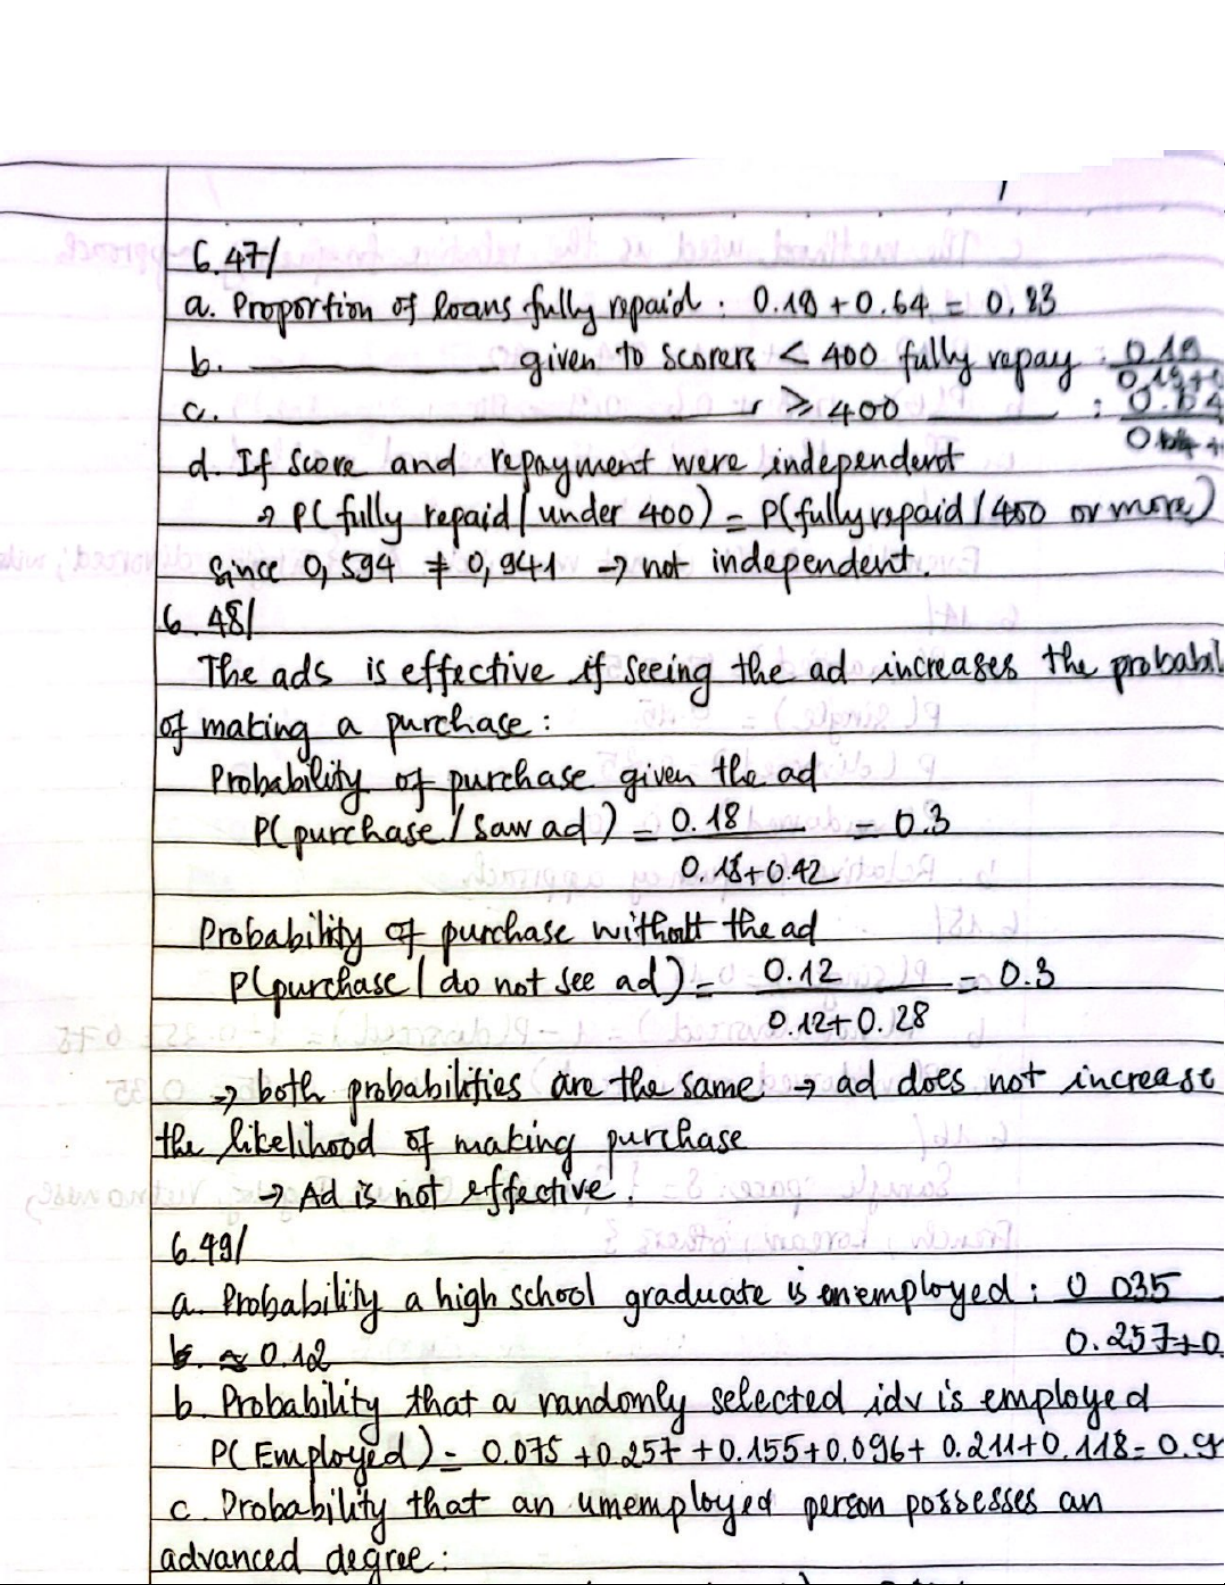 6.47/
a. Proportion of loans fully repaid : 0.19 + 0.64 = 0.83
b. ———— given to scorers < 400 fully repay : 0.19 / 0.19+
c. ———— " ≥ 400 ———— : 0.64 / 0.64 +
d. If score and repayment were independent
→ P(fully repaid / under 400) = P(fully repaid / 400 or more)
Since 0,594 ≠ 0,941 → not independent.
6.48/
The ads is effective if seeing the ad increases the probabil
of making a purchase :
Probability of purchase given the ad
P(purchase / saw ad) = 0.18 / 0.18+0.42 = 0.3
Probability of purchase without the ad
P(purchase / do not see ad) = 0.12 / 0.12+0.28 = 0.3
→ both probabilities are the same → ad does not increase
the likelihood of making purchase
→ Ad is not effective.
6.49/
a. Probability a high school graduate is unemployed : 0.035 / 0.257+0.
≈ 0.12
b. Probability that a randomly selected idv is employed
P(Employed) = 0.075 + 0.257 + 0.155 + 0.096 + 0.211 + 0.118 = 0.9
c. Probability that an unemployed person possesses an
advanced degree :